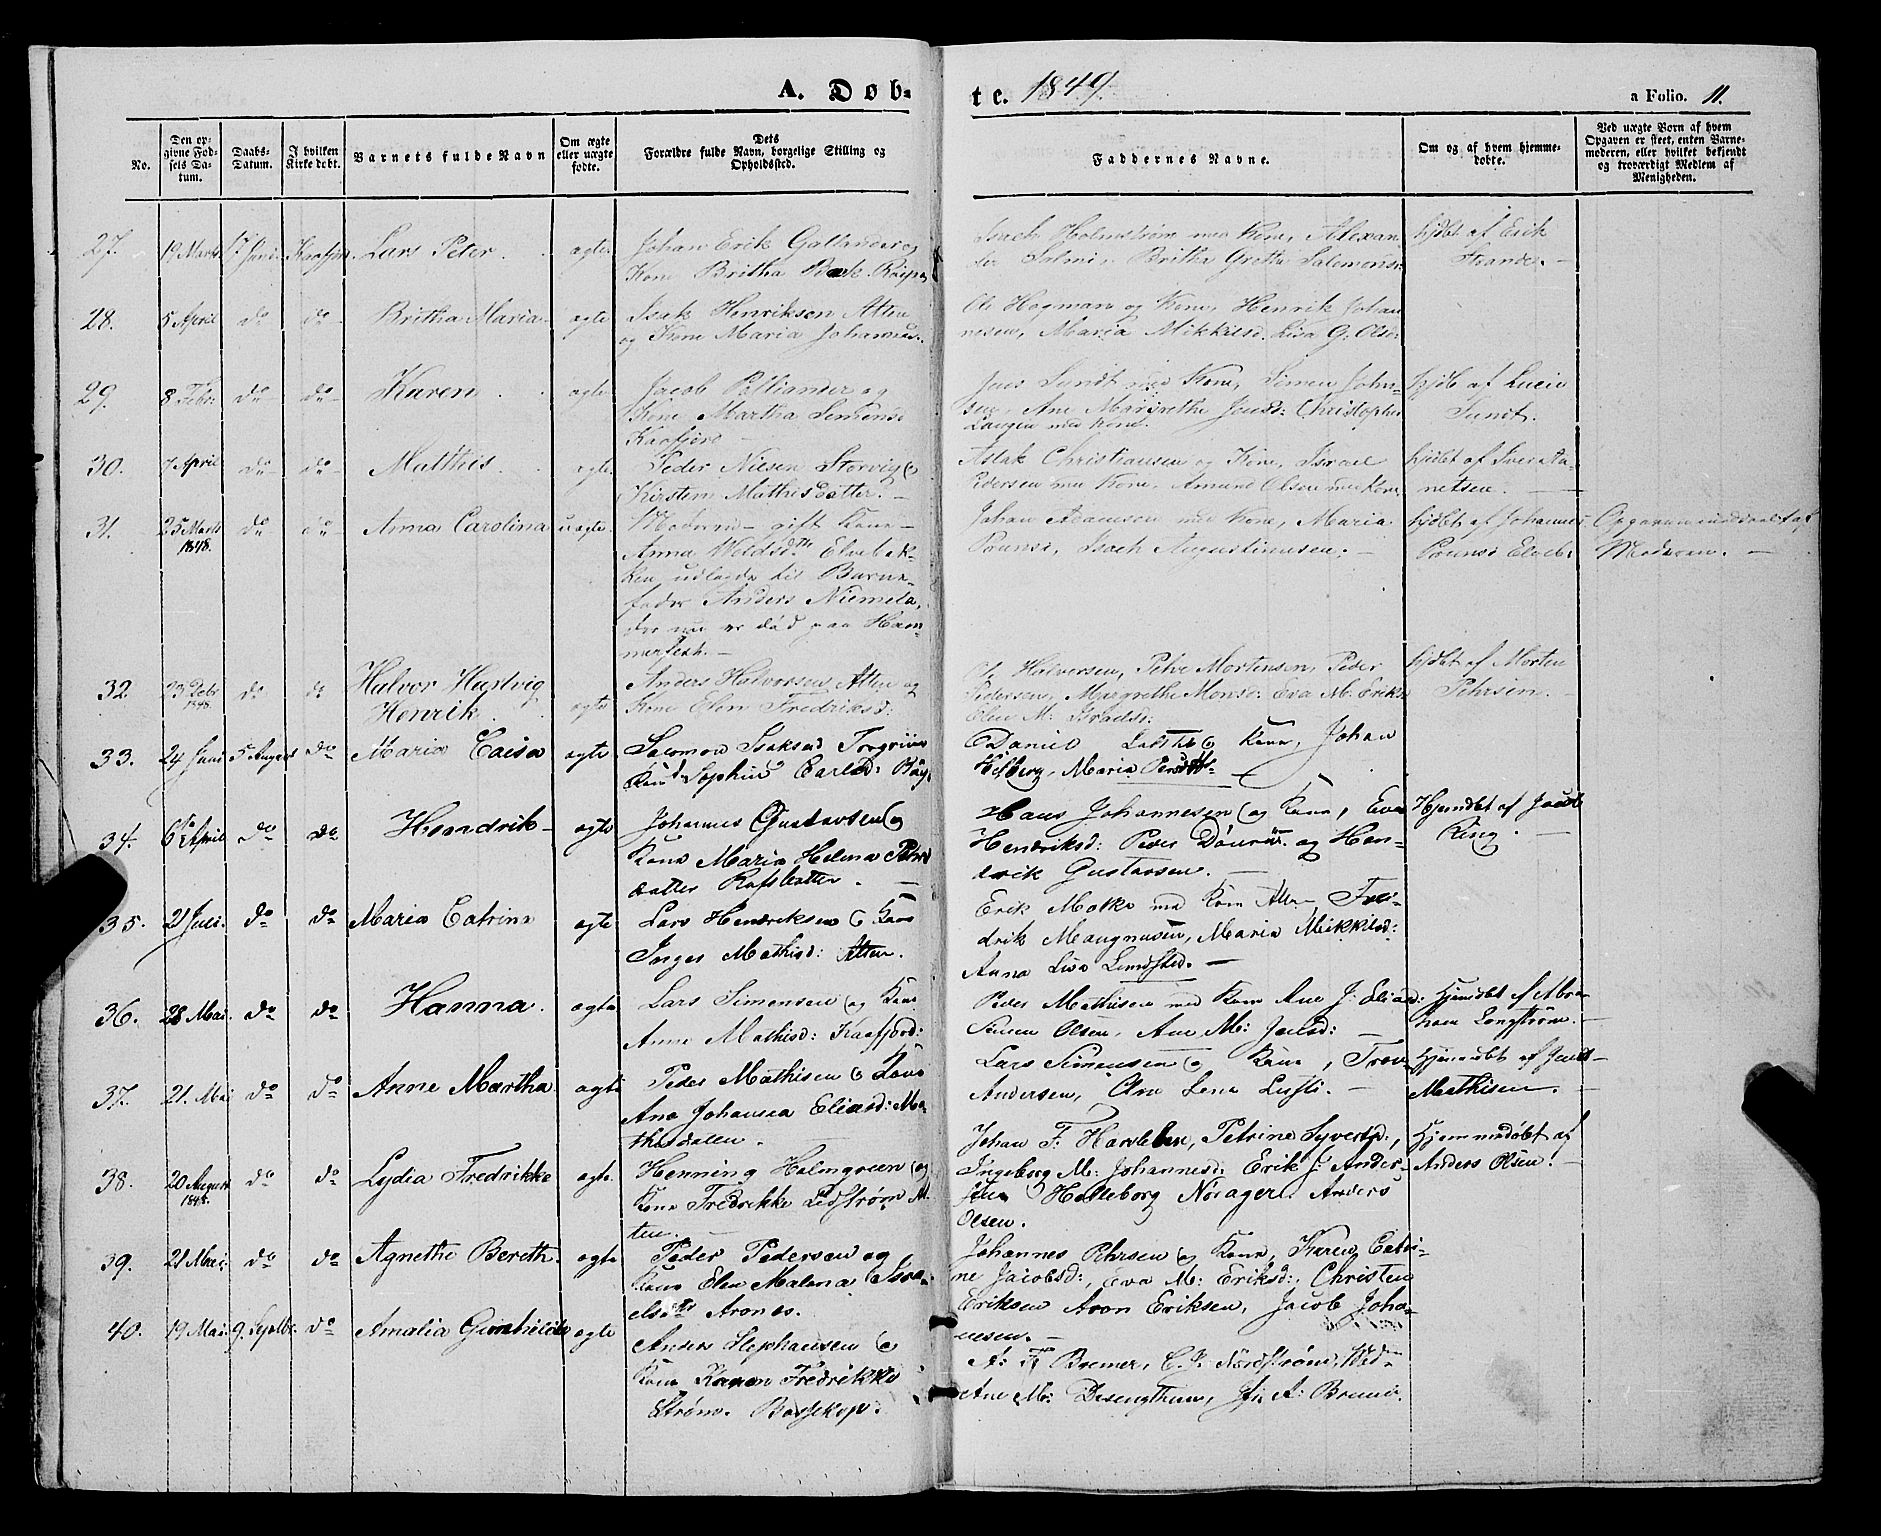 A. Døb-
te. 1849.
a Folio. 11.
No.
Den opgivne Fødsels Datum.
Daabs-Datum.
I hvilken Kirke døbt.
Barnets fulde Navn
Om ægte eller uægte fødte.
Dets Forældre fulde Navn, borgelige Stilling og Opholdssted.
Faddernes Navne.
Om og af hvem hjemmedøbte.
Ved uægte Børn af hvem Opgaven er skeet, enten Barnemoderen, eller hvilket bekjendt og troværdigt Medlem af Menigheden.
27. 19 Marts 17 Juni Kaafjor. Lars Peter. ægte Johan Erik Gallander og
Kone Britha Bæk Raipas
Isach Holmstrøm med Kone, Alexan
der Salmi, Britha Gretha Salemonsd:
hjdbt af Erik
Strande.
28. 5 April do do Britha Maria ægte Isak Henriksen Alten
og Kone Maria Johannesd.
Ole Hagman og Kone, Henrik Johan
nesen, Maria Mikkelsd. Lisa G. Olsd:
29. 8 Febr: do do Karen ægte Jacob Pelliander og
Kone Martha Simensd
Kaafjord
Jens Sundt med Kone, Simen John-
sen, Ane Margrethe Jensd: Christopher
Laugen med Kone.
hjdb af Lucie
Sundt.
30. 7 April do do Matthis. ægte Peder Nilsen Storvig og
Kirsten Mathisdatter.
Aslak Christiansen og Kone, Israel
Pedersen med Kone, Amund Olsen med Kone
hjdbt af Sver An-
netsen.
31. 25 Marts
1848. do do Anna Carolina uægte. Moderen - gift Kone -
Anna Weldsdtr Elvebak-
ken, udlagde til Barne-
fader Anders Niemela,
der nu er død paa Ham-
merfest.
Johan Adamsen med Kone, Maria
Pounsd, Isach Augustinusen.
hjdbt af Johannes
Pounsd Elveb:
Opgaven meddeelt af
Moderen.
32. 23 Debr
1848. do do Halvor Hartvig
Henrik. ægte Anders Halvorsen, Alten og
Kone Elen Fredriksd:
O. Halvorsen, Petre Mortensen, Peder
Pedersen, Margrethe Monsd: Eva M. Eriksd
Elen M: Israelsd:
hjdbt af Morten
Pehrsen.
33. 24 Juni 5 August do Maria Caisa ægte Salomon Isaksen
Sophia Carlsd:
Daniel og Kone, Johan
Hesberg, Maria
34. 6te April do do Hendrik ægte Johannes Gustavsen og
Kone Maria Helena Pehrs
datter Rafsbotten.
Hans Johannesen og Kone, Eva
Hendriksd: Peder og Hen-
drik Gustavsen.
Hjemdbt af Jacob
King.
35. 21 Juli. do do Maria Catrina ægte Lars Hendriksen og Kone
Inger Mathisd: Alten.
Erik Molke med Kone Alten Fre-
drik Maugnusen, Maria Mikkilsd:
Anna Lisa Lundsted.
36. 28 Mai. do do Hanna. ægte Lars Simensen og Kone
Anne Mathisd: Kaafjord:
Peder Mathisen med Kone Ane J: Eliasd:
Simen Olsen, Ane M: Jensd:
Hjemdbt af Abra-
ham Longstrøm.
37. 21. Mai do do Anne Martha ægte Peder Mathisen og Kone
Ane Johanna Eliasd: Ma-
thisdalen.
Lars Simensen og Kone,
Andersen, Ane Lena
Hjemdbt af
Mathisen.
38. 20 August
1848. do do Lydia Fredrikke ægte. Henning Holmgreen og
Kone Fredrikke Lidstrøm Al-
ten.
Johan F. Petrine Syvertsd,
Ingeborg M: Johannesd: Erik J: Ander-
sen Halleborg Norager. Anders
Olsen.
Hjemmedøbt af
Anders Olsen.
39. 21 Mai: do do Agnethe Bereth. ægte Peder Pedersen og
Kone Elen Malena Isra-
elsdtr Arones.
Johannes Pehrsen og Kone, Karen Catri-
ne Jacobsd:, Eva M: Eriksd:, Christen
Eriksen Aron Eriksen, Jacob Joha-
nesen.
40. 19 Mai. 9. Septbr. do Amalia Gunhilde ægte Anders Stephansen og
Kone Karen Fredrikke
Strøm. Bossekop.
A: F Bremer, C. P. Nordstrøm,
Ane M: A: